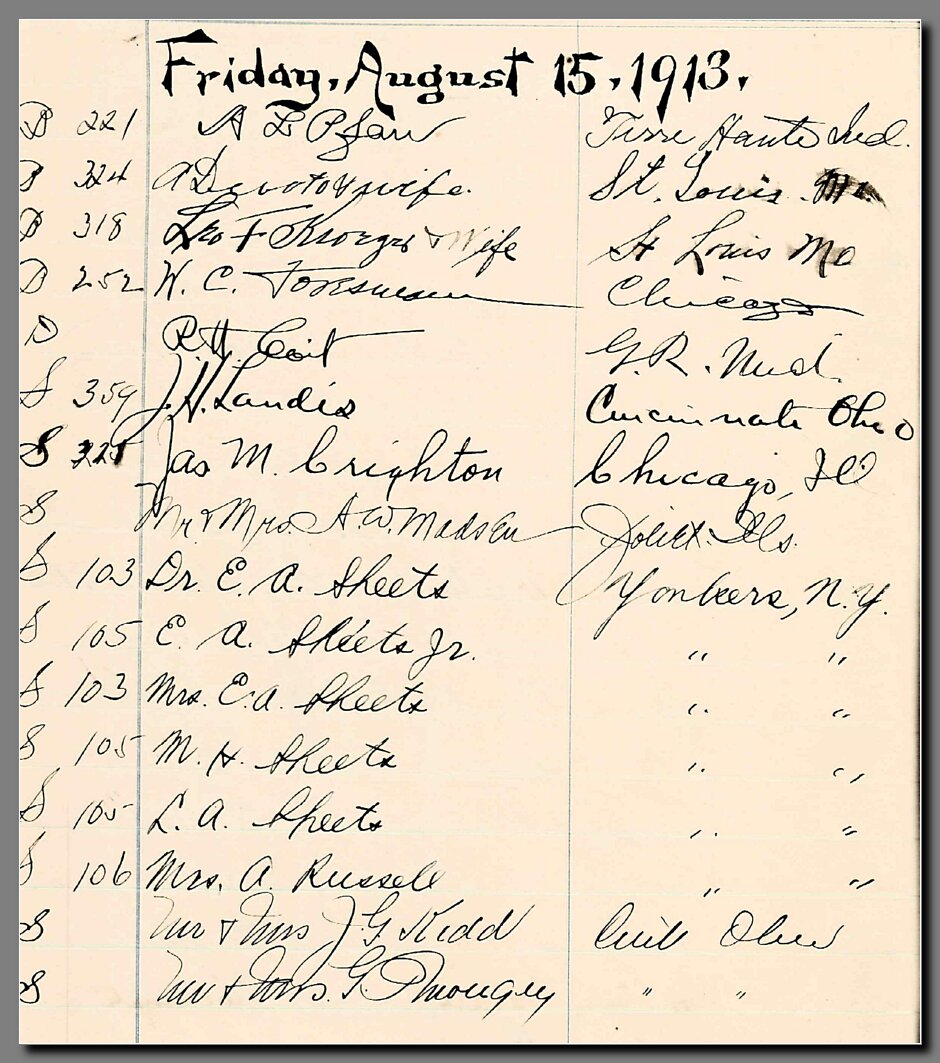 Friday, August 15, 1913.
B 221 A B Pfau Terre Haute Ind.
B 324 A Devoto & wife. St. Louis. Mo.
B 318 Leo F Kroeger & Wife St Louis Mo
D 252 W. C. Foresman Chicago
D R. H. Coit G. R. Mich.
S 359 J. H. Landis Cincinnati Ohio
S 325 Jas M. Crighton Chicago, Ill
S Mr & Mrs. A. W. Madsen Joliet. Ills.
S 103 Dr. E. A. Sheets Yonkers, N. Y.
S 105 E. A. Sheets Jr. " "
S 103 Mrs. E. A. Sheets " "
S 105 M. H. Sheets " "
S 105 L. A. Sheets " "
S 106 Mrs. A. Russell " "
S Mr & Mrs J G Kidd Ohio
S Mr & Mrs. G. " "